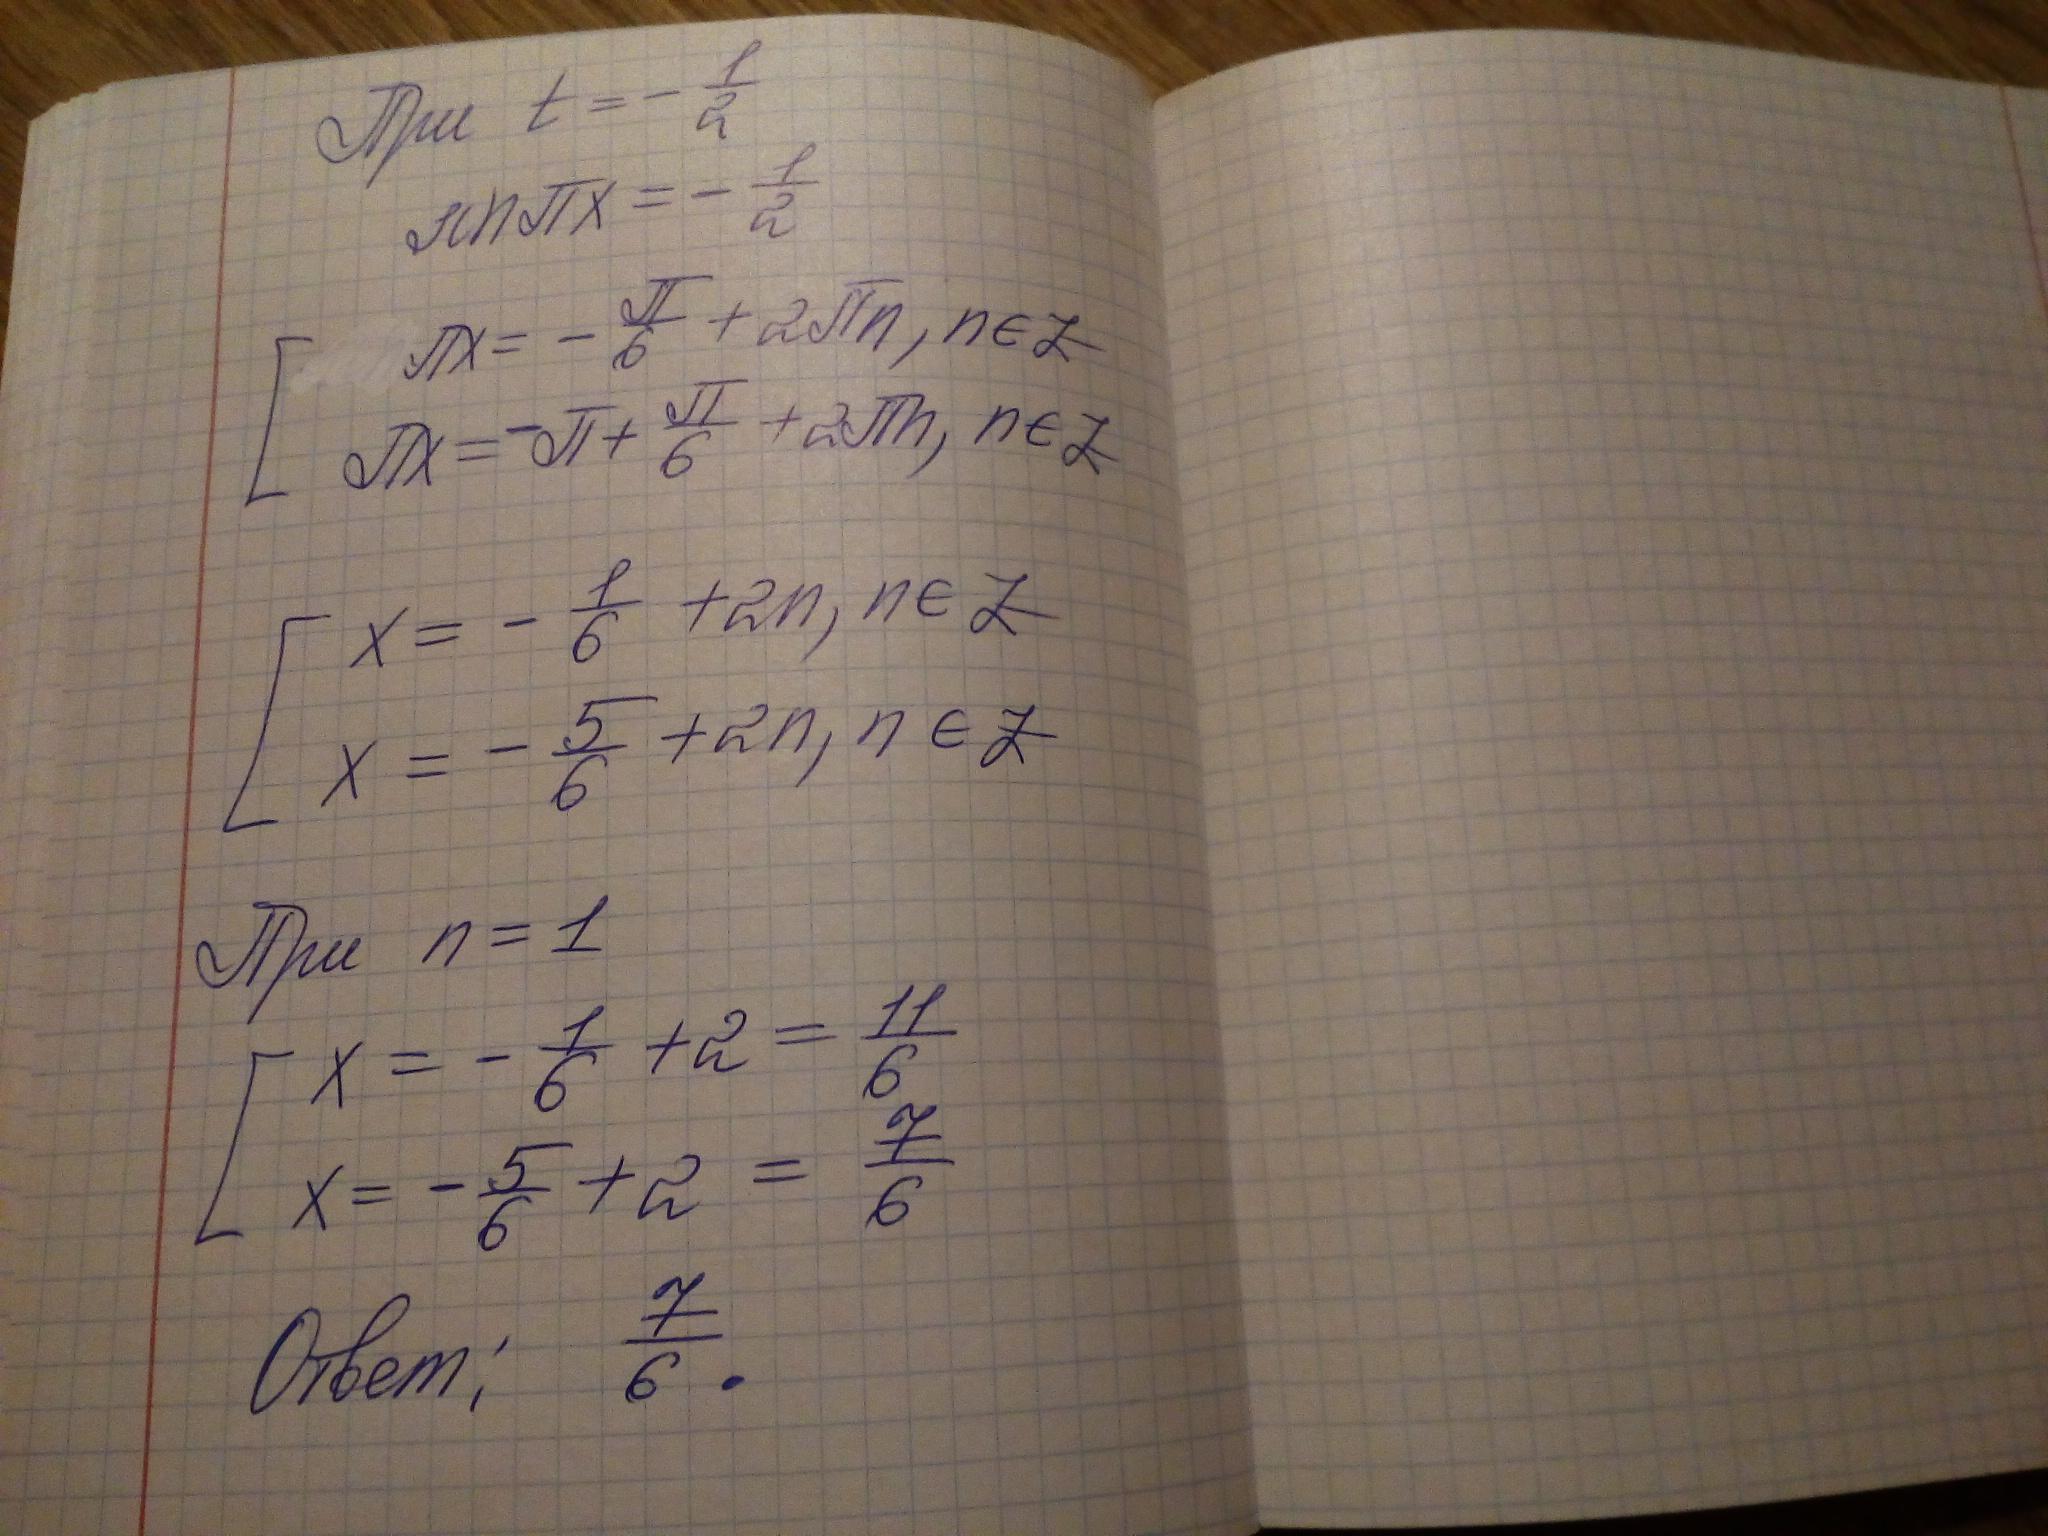 При t = - 1/2
sin πx = - 1/2
πx = - π/6 + 2πn, n ∈ Z
πx = -π + π/6 + 2πn, n ∈ Z
x = - 1/6 + 2n, n ∈ Z
x = - 5/6 + 2n, n ∈ Z
При n = 1
x = - 1/6 + 2 = 11/6
x = - 5/6 + 2 = 7/6
Ответ: 7/6.